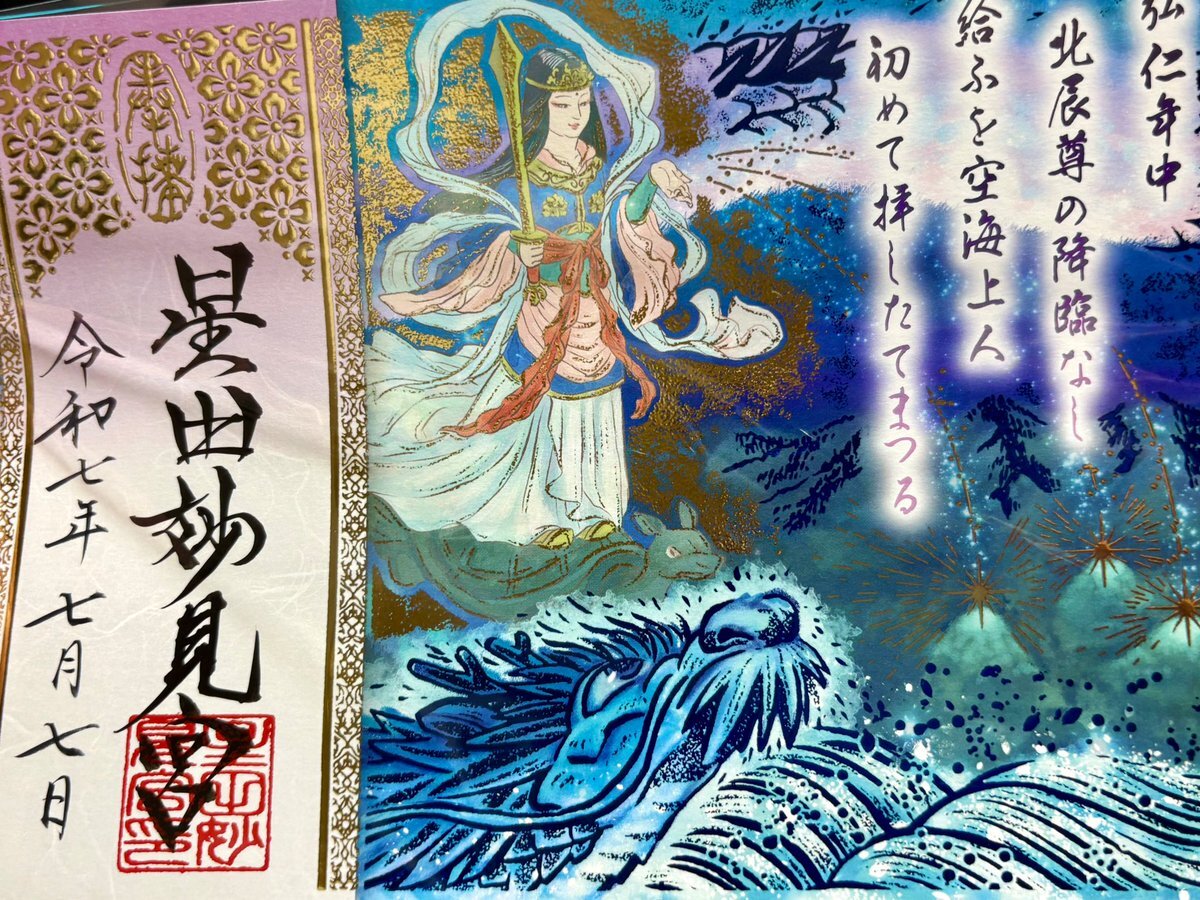 弘仁年中
北辰尊の降臨なし
給ふを空海上人
初めて拝したてまつる
奉拝
星田妙見宮
令和七年 七月 七日